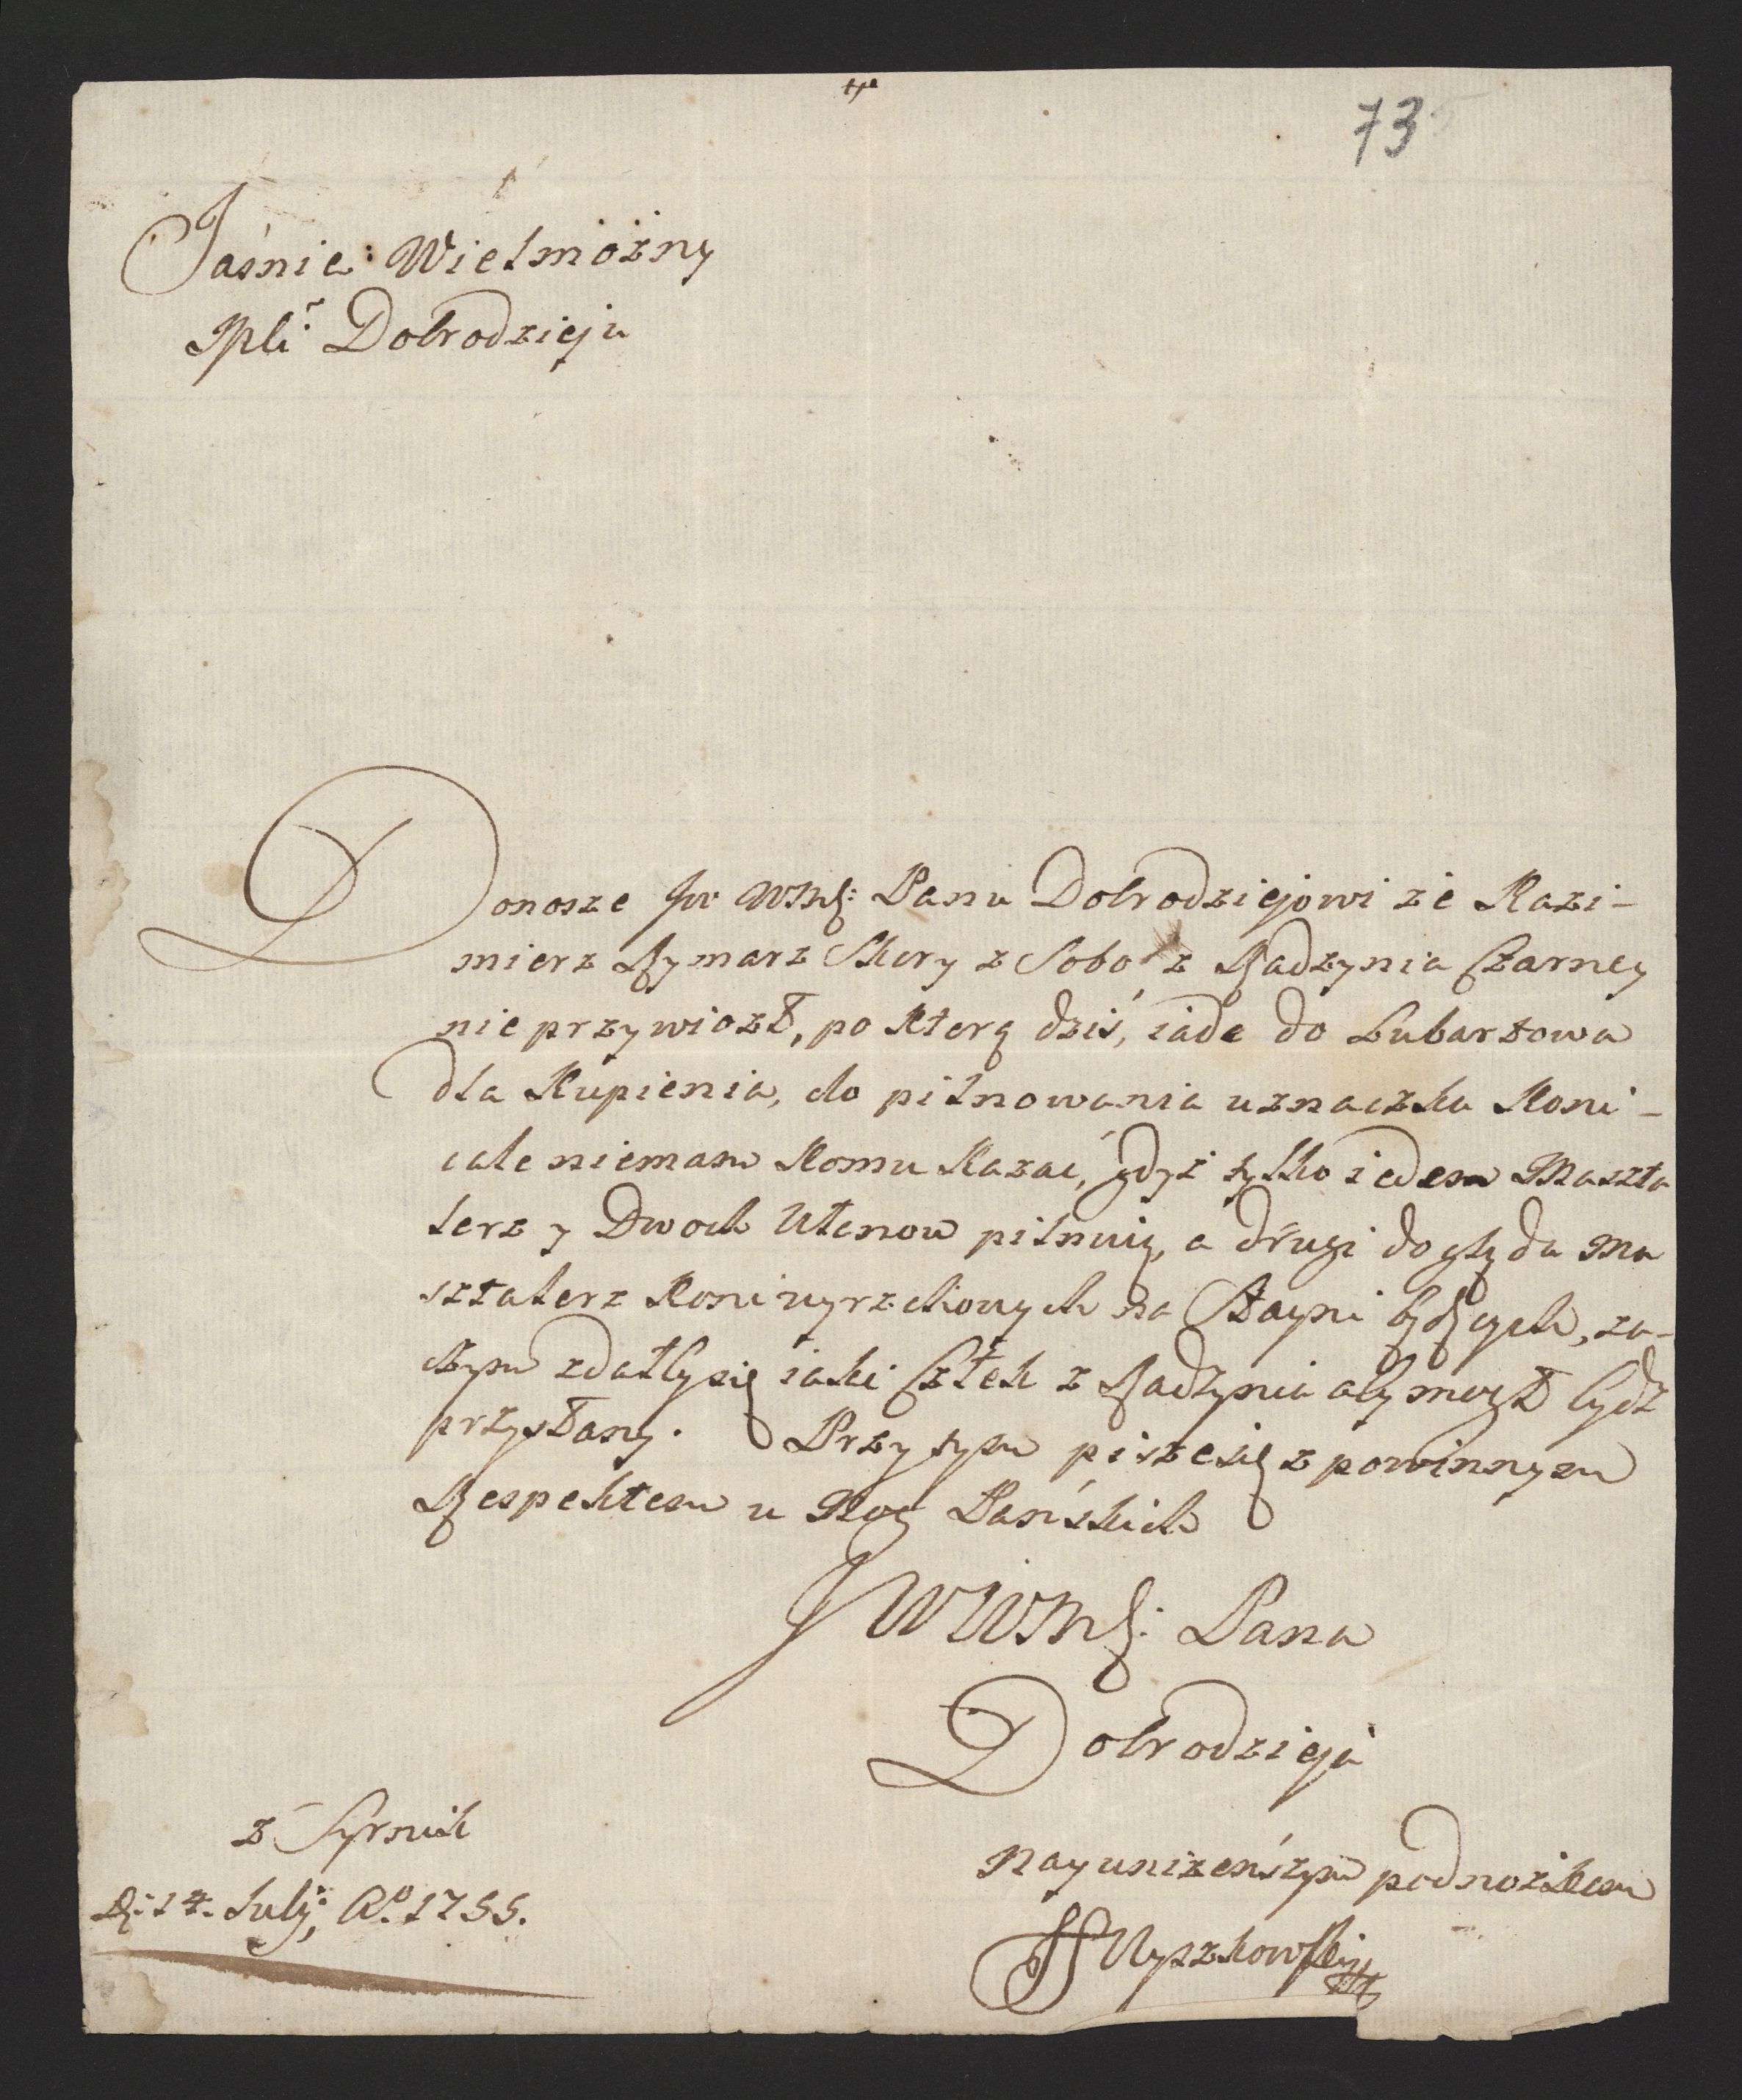 73
Jaśnie Wielmożny
Młi Dobrodzieju
Donosze Jw WMĘ: Panu Dobrodziejowi że Kazi-
mierz Rymarz Skory z Sobo z Radzynia Czarney
nie przywiozł, po Ktorą dziś, iade do Lubartowa
dla Kupienia, do pilnowania uznaczka Koni-
cale niemam Komu Kazać, gdyż tylko ieden Maszta
lerz y Dwoch Ułanow pilnuią, a drugi dogląda Ma
sztalerz Koni wyrzchowych na Stayni będących, za-
tym zdałby się iaki Człek z Radzynia aby mogł bydz
przysłany. Przy tym pisze się z powinnym
Respektem u Nog Pańskich
JWWMĘ: Pana
Dobrodzieja
Nayuniżeńszym podnożkiem
Wyszkowski
z Syrnik
D: 14. July, Ao. 1755.